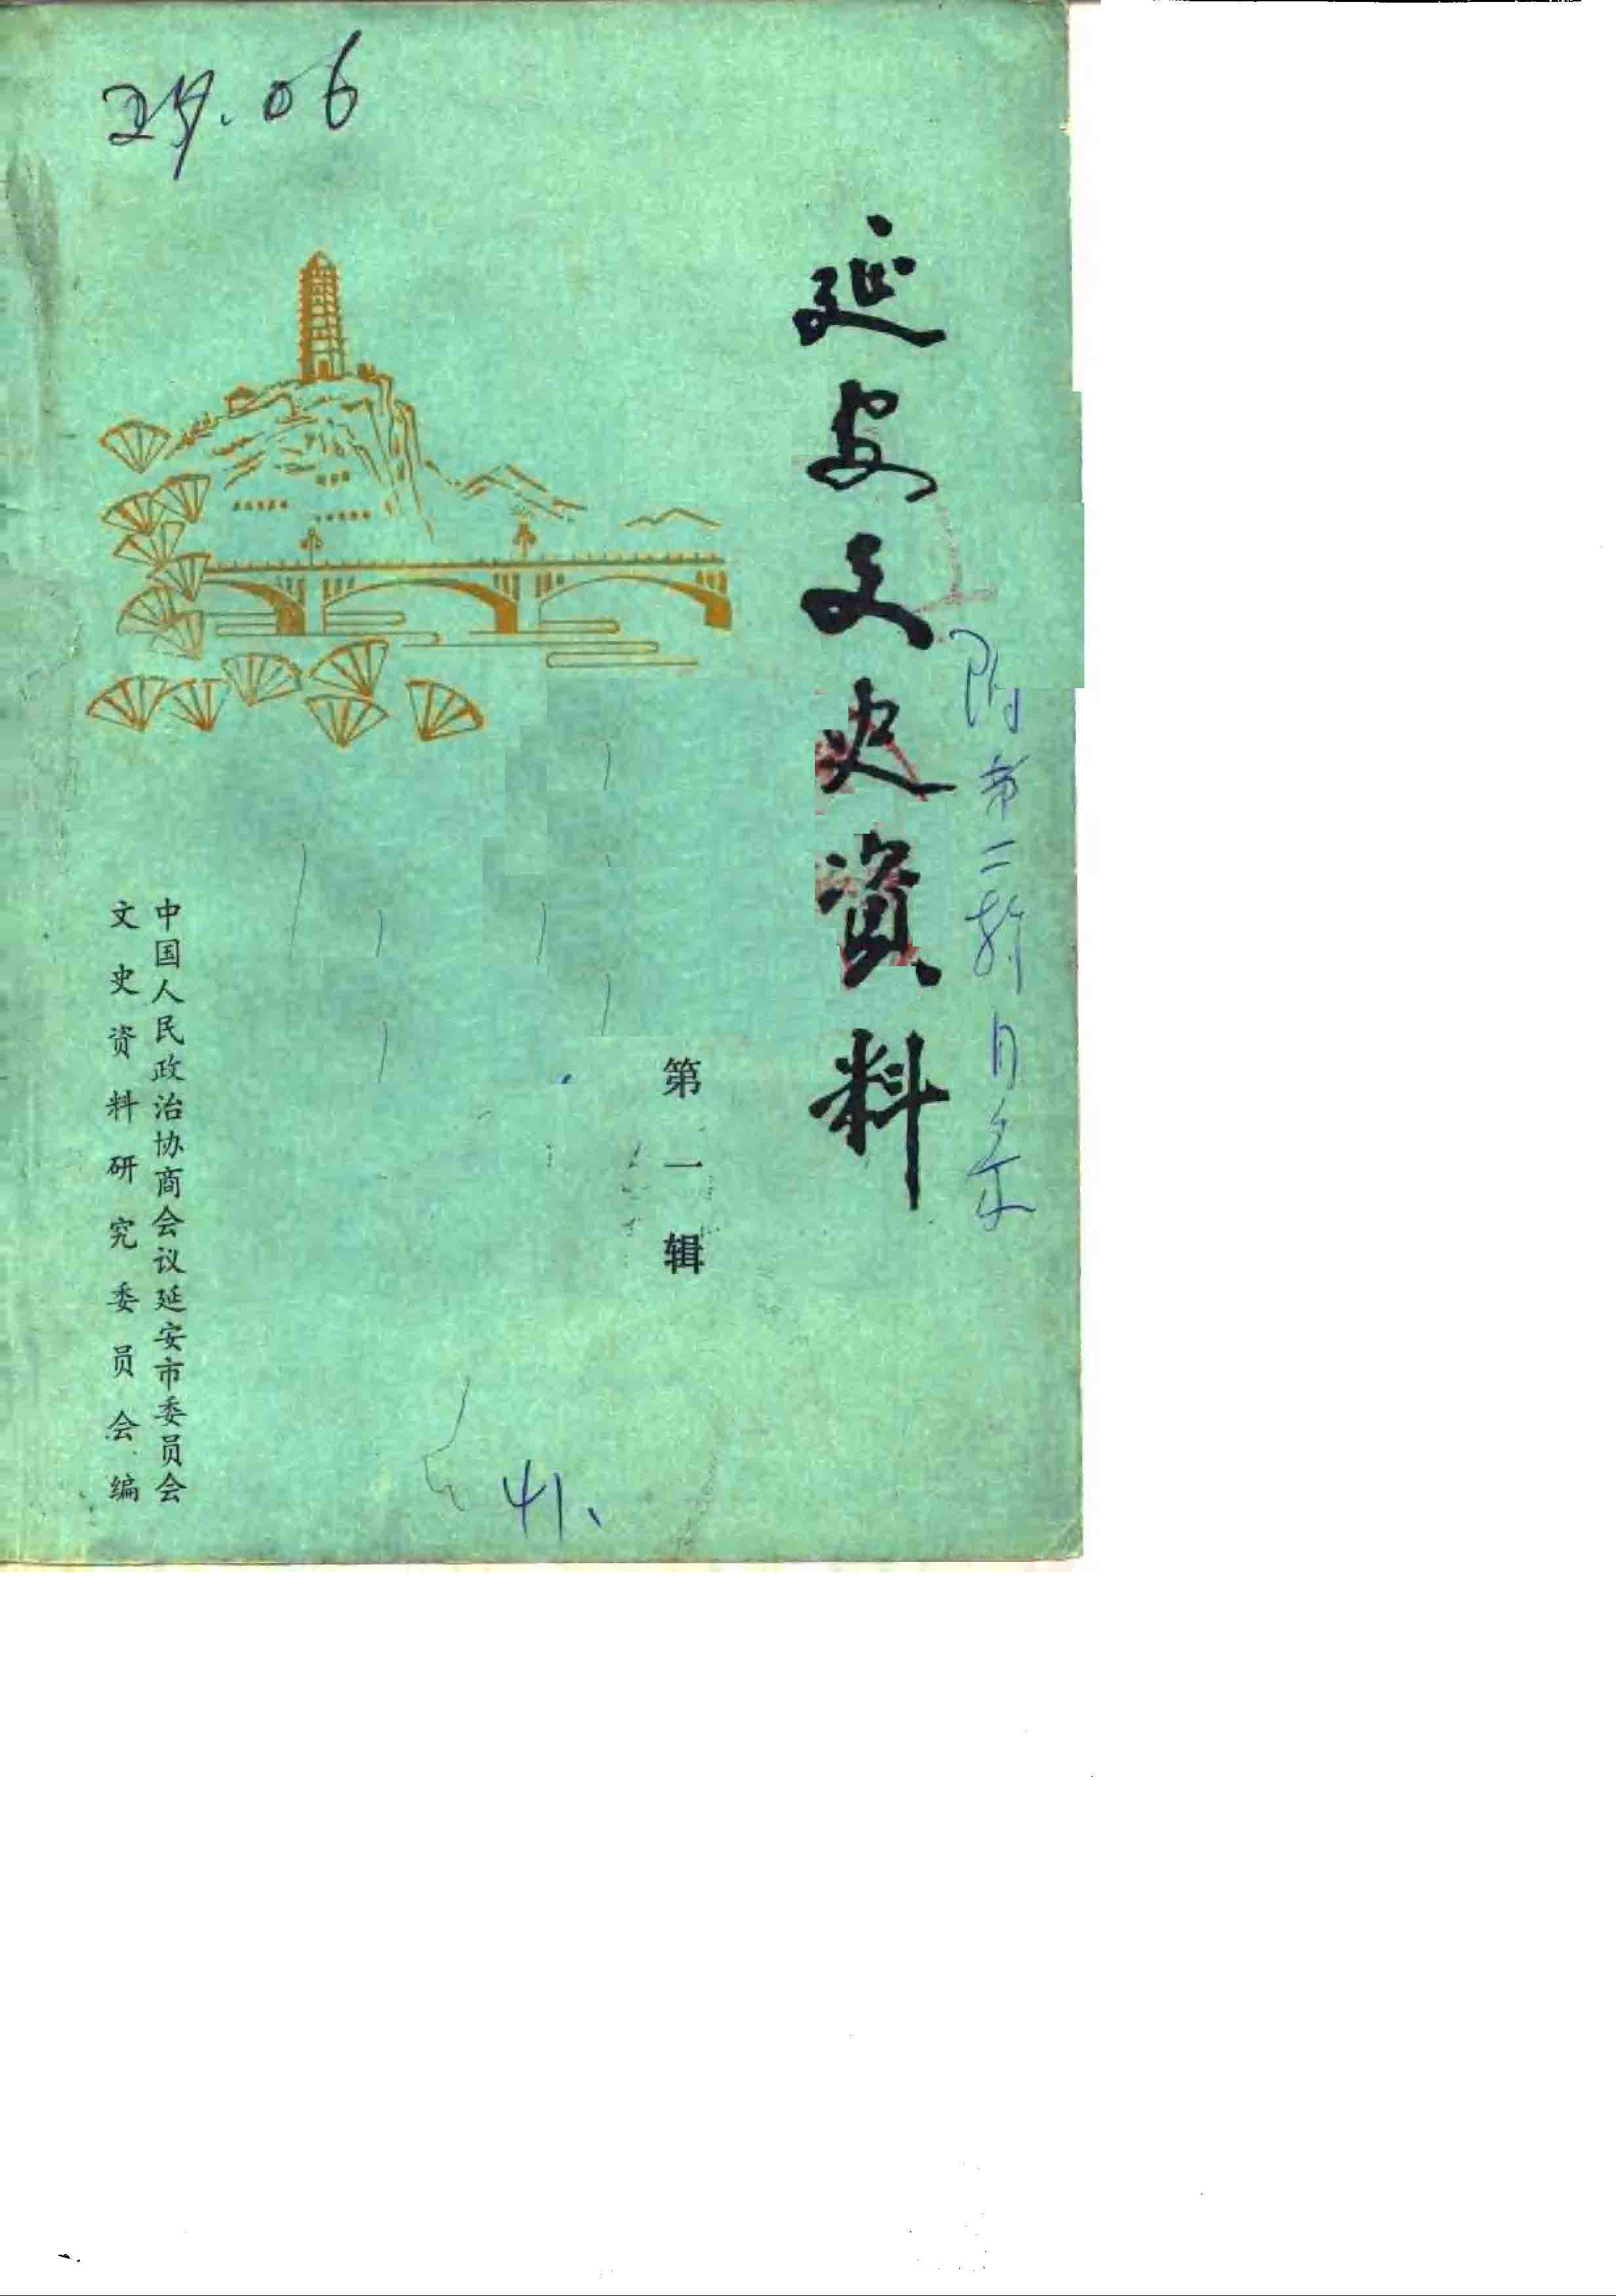 延安文史資料
附第二辑目录
第一辑
中国人民政治协商会议延安市委员会
文史资料研究委员会编
41、